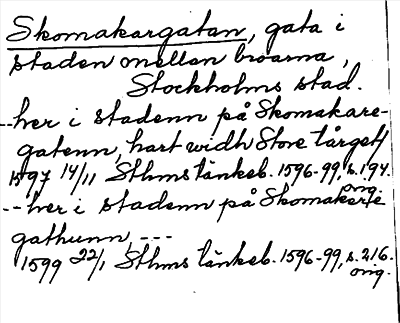 Skomakargatan, gata i
staden mellan broarna,
Stockholms stad.
--her i stadenn på Skomakare-
gatenn, hart widh Store tårget/
1597 14/11 Sthms tänkeb. 1596-99, s. 194.
orig.
--her i stadenn på Skomakare
gathunn, ---
1599 22/1 Sthms tänkeb. 1596-99, s. 216.
orig.